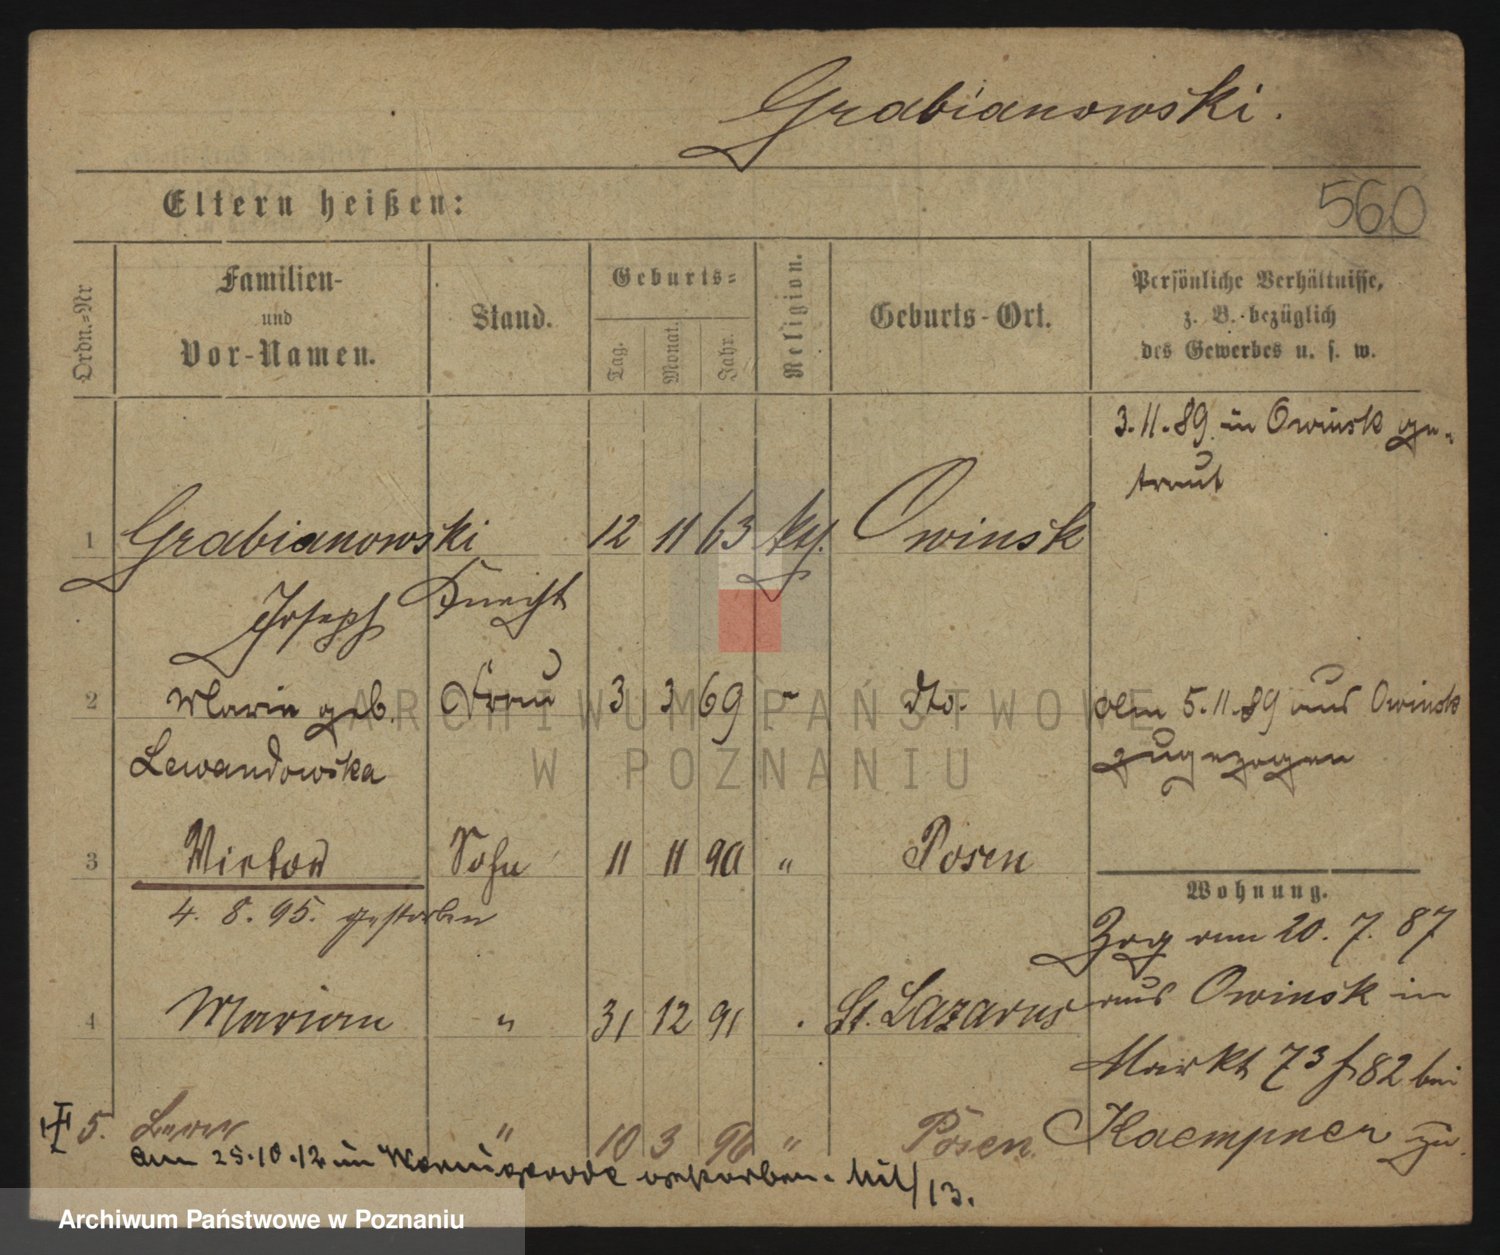 Grabianowski.
Eltern heißen:
560
Ordn.-Nr
Familien-
und
Vor-Namen.
Stand.
Geburts-
Tag.
Monat.
Jahr.
Religion.
Geburts-Ort.
Persönliche Verhältnisse,
z. B. bezüglich
des Gewerbes u. s. w.
3.11.89 in Owinsk ge-
traut
1 Grabianowski 12 11 63 Owinsk
Joseph Knecht
2 Maria geb. Frau 3 3 69 " dto. Am 5.11.89 aus Owinsk
Lewandowska zugezogen
3 Sohn 11 11 90 " Posen
Wohnung.
4. 8. 95. gestorben
Zog am 20. 7. 87
4 Marian " 31 12 91 St. Lazarus aus Owinsk in
Markt 73 f 82 bei
5. " 10 3 96 " Posen Kaempner zu.
am 25.10.12 in gestorben. /13.
ARCHIWUM PAŃSTWOWE
W POZNANIU
Archiwum Państwowe w Poznaniu